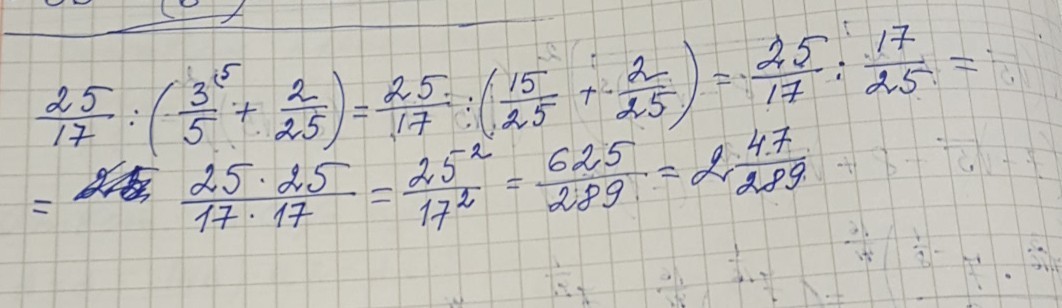 25/17 : (3⁽⁵/5 + 2/25) = 25/17 : (15/25 + 2/25) = 25/17 : 17/25 =
= 25·25/17·17 = 25²/17² = 625/289 = 2 47/289